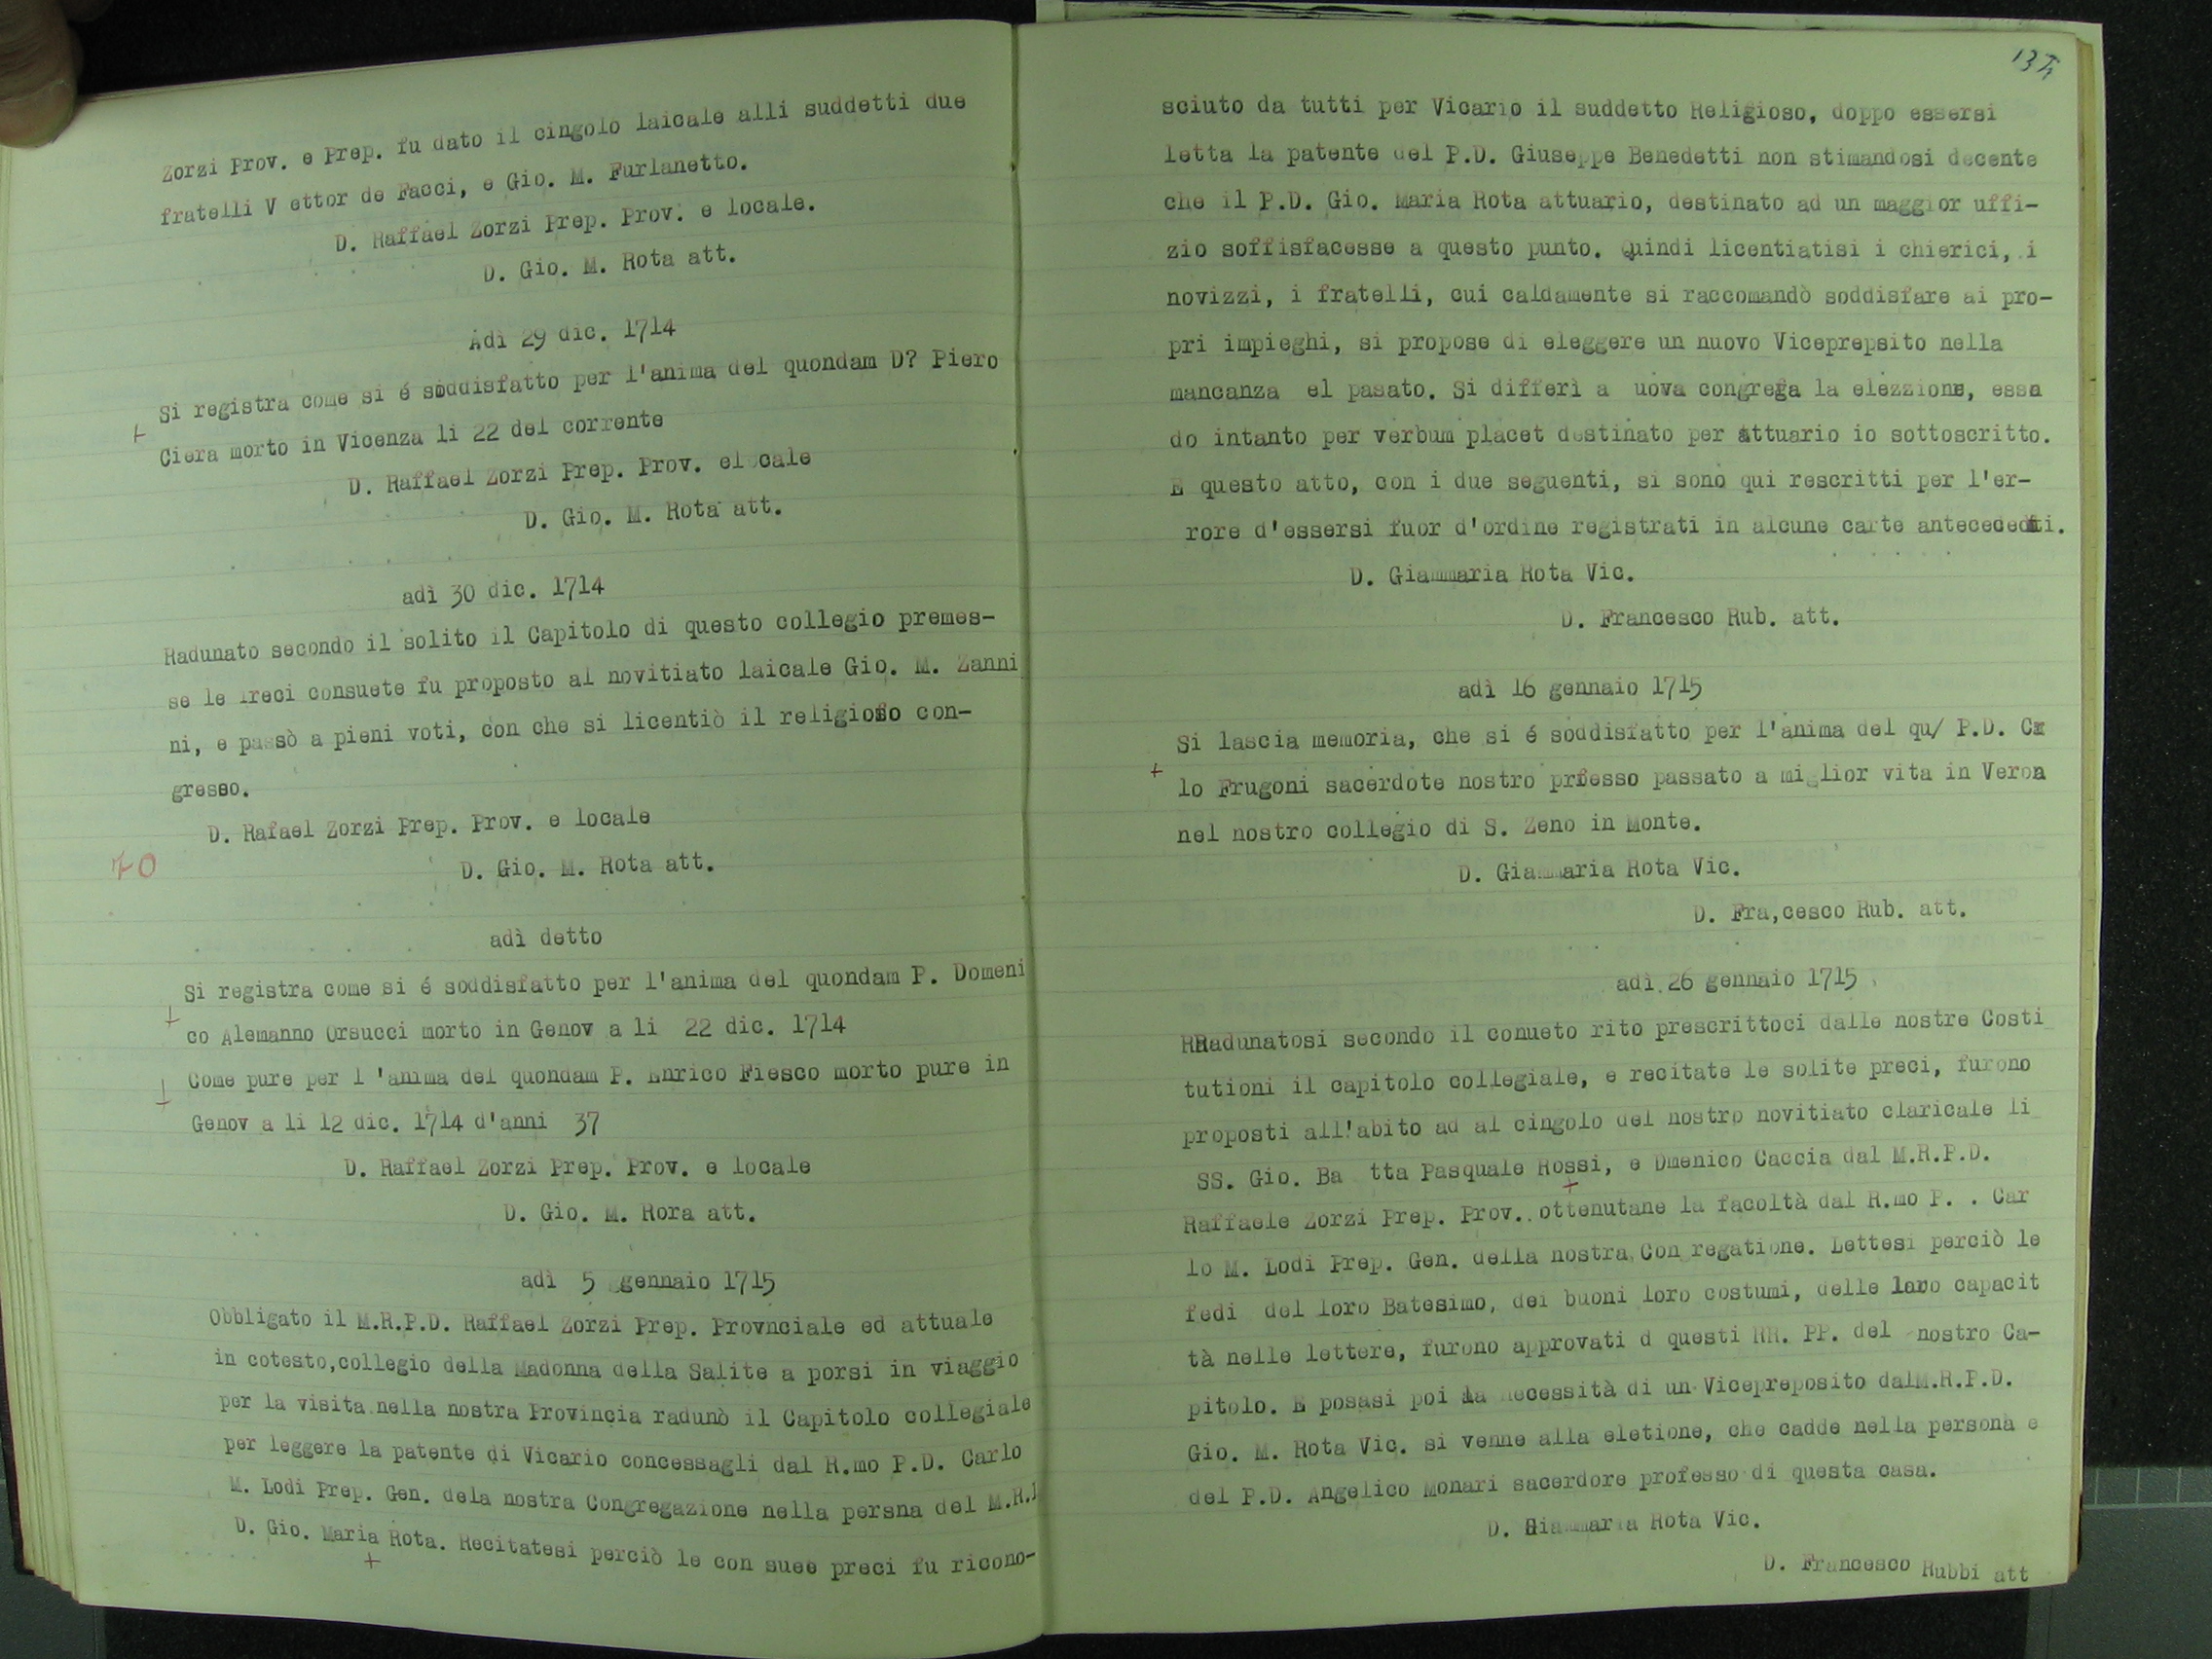 Zorzi Prov. e Prep. fu dato il cingolo laicale alli suddetti due
fratelli V ettor de Facci, e Gio. M. Furlanetto.
D. Raffael Zorzi Prep. Prov. e locale.
D. Gio. M. Rota att.
Adì 29 dic. 1714
Si registra come si é soddisfatto per l'anima del quondam D? Piero
Ciera morto in Vicenza li 22 del corrente
D. Raffael Zorzi Prep. Prov. elocale
D. Gio. M. Rota att.
adì 30 dic. 1714
Radunato secondo il solito il Capitolo di questo collegio premes-
se le Ireci consuete fu proposto al novitiato laicale Gio. M. Zanni
ni, e passò a pieni voti, con che si licentiò il religioso con-
gresso.
D. Rafael Zorzi Prep. Prov. e locale
70
D. Gio. M. Rota att.
adì detto
Si registra come si é soddisfatto per l'anima del quondam P. Domeni
co Alemanno Orsucci morto in Genov a li 22 dic. 1714
Come pure per l 'anima del quondam P. Enrico Fiesco morto pure in
Genov a li 12 dic. 1714 d'anni 37
D. Raffael Zorzi Prep. Prov. e locale
D. Gio. M. Rora att.
adì 5 gennaio 1715
Obbligato il M.R.P.D. Raffael Zorzi Prep. Provnciale ed attuale
in cotesto,collegio della Madonna della Salite a porsi in viaggio
per la visita nella nostra Provincia radunò il Capitolo collegiale
per leggere la patente di Vicario concessagli dal R.mo P.D. Carlo
M. Lodi Prep. Gen. dela nostra Congregazione nella persna del M.R.
D. Gio. Maria Rota. Recitatesi perciò le con suee preci fu ricono-
sciuto da tutti per Vicario il suddetto Religioso, doppo essersi
letta la patente del P.D. Giuseppe Benedetti non stimandosi decente
che il P.D. Gio. Maria Rota attuario, destinato ad un maggior uffi-
zio soffisfacesse a questo punto. Quindi licentiatisi i chierici, i
novizzi, i fratelli, cui caldamente si raccomandò soddisfare ai pro-
pri impieghi, si propose di eleggere un nuovo Viceprepsito nella
mancanza el pasato. Si differì a uova congrega la elezzione, essn
do intanto per verbum placet destinato per attuario io sottoscritto.
E questo atto, con i due seguenti, si sono qui rescritti per l'er-
rore d'essersi fuor d'ordine registrati in alcune carte antecedenti.
D. Giammaria Rota Vic.
D. Francesco Rub. att.
adì 16 gennaio 1715
Si lascia memoria, che si é soddisfatto per l'anima del qu/ P.D. Car
lo Frugoni sacerdote nostro prfesso passato a miglior vita in Verona
nel nostro collegio di S. Zeno in Monte.
D. Giammaria Rota Vic.
D. Fra,cesco Rub. att.
adì 26 gennaio 1715
RRadunatosi secondo il conueto rito prescrittoci dalle nostre Costi
tutioni il capitolo collegiale, e recitate le solite preci, furono
proposti all'abito ad al cingolo del nostro novitiato claricale li
SS. Gio. Ba tta Pasquale Rossi, e Dmenico Caccia dal M.R.P.D.
Raffaele Zorzi Prep. Prov. ottenutane la facoltà dal R.mo P. . Car
lo M. Lodi Prep. Gen. della nostra Con regatione. Lettesi perciò le
fedi del loro Batesimo, dei buoni loro costumi, delle loro capacit
tà nelle lettere, furono approvati d questi RR. PP. del nostro Ca-
pitolo. E posasi poi la necessità di un Vicepreposito dalM.R.P.D.
Gio. M. Rota Vic. si venne alla eletione, che cadde nella persona e
del P.D. Angelico Monari sacerdore professo di questa casa.
D. Giammaria Rota Vic.
D. Francesco Rubbi att